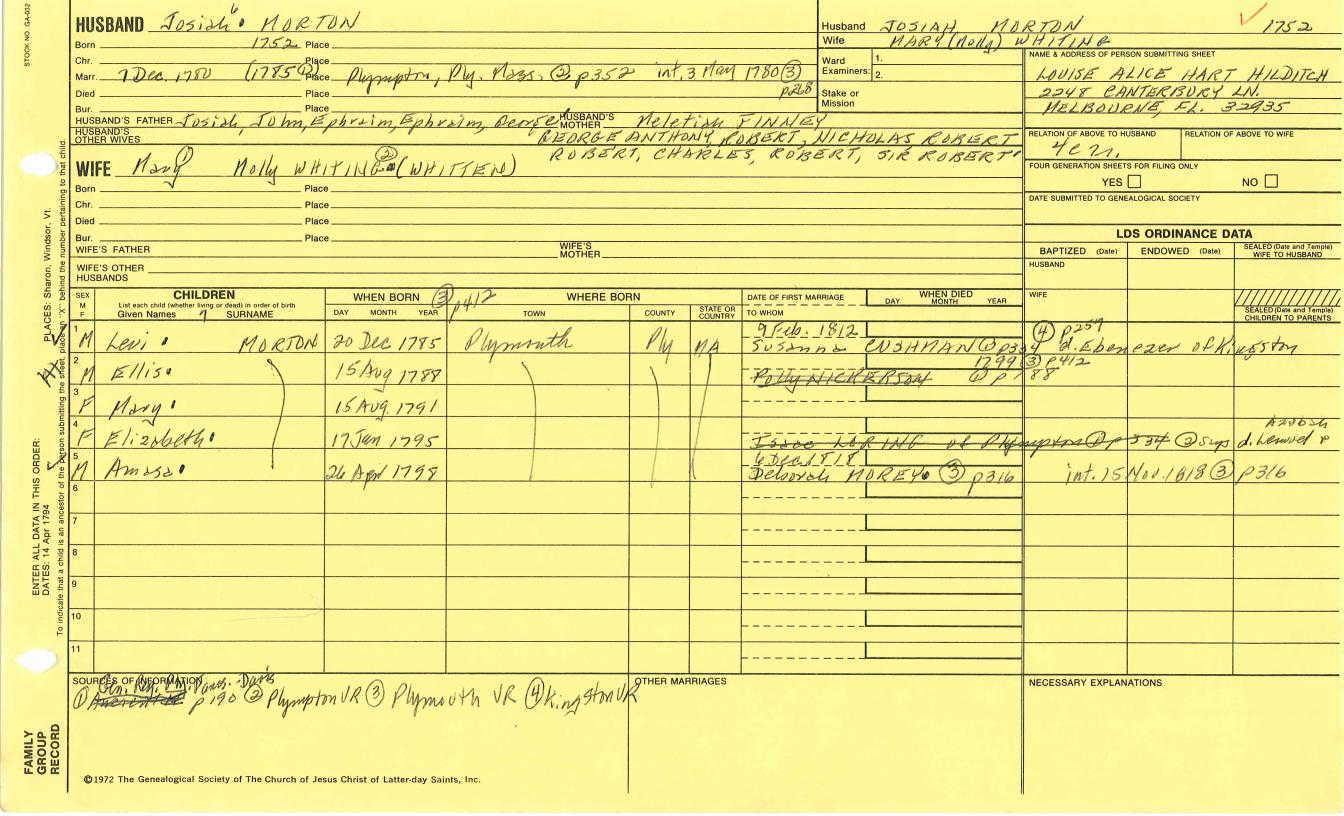 STOCK NO. GA-002
HUSBAND Josiah 6 MORTON
Born 1752 Place
Chr. Place
Marr. 7 Dec. 1780 (1785 ① Place Plympton, Ply. Mass. ② p352 int. 3 May 1780 ③ p268
Died Place
Bur. Place
HUSBAND'S FATHER Josiah, John, Ephraim, Ephraim, George HUSBAND'S MOTHER Meletiah FINNEY
HUSBAND'S OTHER WIVES GEORGE ANTHONY, ROBERT, NICHOLAS ROBERT
ROBERT, CHARLES, ROBERT, SIR ROBERT
WIFE Mary Molly WHITING ② (WHITTEN)
Born Place
Chr. Place
Died Place
Bur. Place
WIFE'S FATHER WIFE'S MOTHER
WIFE'S OTHER HUSBANDS
Husband JOSIAH MORTON 1752
Wife MARY (Molly) WHITING
Ward Examiners: 1.
2.
Stake or Mission
NAME & ADDRESS OF PERSON SUBMITTING SHEET
LOUISE ALICE HART HILDITCH
2248 CANTERBURY LN.
MELBOURNE, FL. 32935
RELATION OF ABOVE TO HUSBAND RELATION OF ABOVE TO WIFE
FOUR GENERATION SHEETS FOR FILING ONLY
YES NO
DATE SUBMITTED TO GENEALOGICAL SOCIETY
LDS ORDINANCE DATA
BAPTIZED (Date) ENDOWED (Date) SEALED (Date and Temple) WIFE TO HUSBAND
HUSBAND
WIFE
SEALED (Date and Temple) CHILDREN TO PARENTS
SEX M F CHILDREN List each child (whether living or dead) in order of birth Given Names 7 SURNAME WHEN BORN ③ p412 DAY MONTH YEAR WHERE BORN TOWN COUNTY STATE OR COUNTRY DATE OF FIRST MARRIAGE TO WHOM WHEN DIED DAY MONTH YEAR
1 M Levi MORTON 20 Dec 1785 Plymouth Ply MA 9 Feb. 1812 Susanna CUSHMAN p334 ④ p259 d. Ebenezer of Kingston
2 M Ellis 15 Aug 1788 Polly NICKERSON 1799 ③ p412
3 F Mary 15 Aug. 1791
4 F Elizabeth 17 Jan 1795 Isaac LORING of Plympton p 334 ② says d. Lemuel
5 M Amasa 26 Apr 1798 6 Dec. 1818 Deborah MOREY ③ p316 int. 15 Nov. 1818 ③ p316
6
7
8
9
10
11
SOURCES OF INFORMATION
① p 190 ② Plympton VR ③ Plymouth VR ④ Kingston VR
OTHER MARRIAGES
NECESSARY EXPLANATIONS
©1972 The Genealogical Society of The Church of Jesus Christ of Latter-day Saints, Inc.
FAMILY GROUP RECORD
ENTER ALL DATA IN THIS ORDER:
DATES: 14 Apr 1794 PLACES: Sharon, Windsor, Vt.
To indicate that a child is an ancestor of the person submitting the sheet, place an "X" behind the number pertaining to that child.